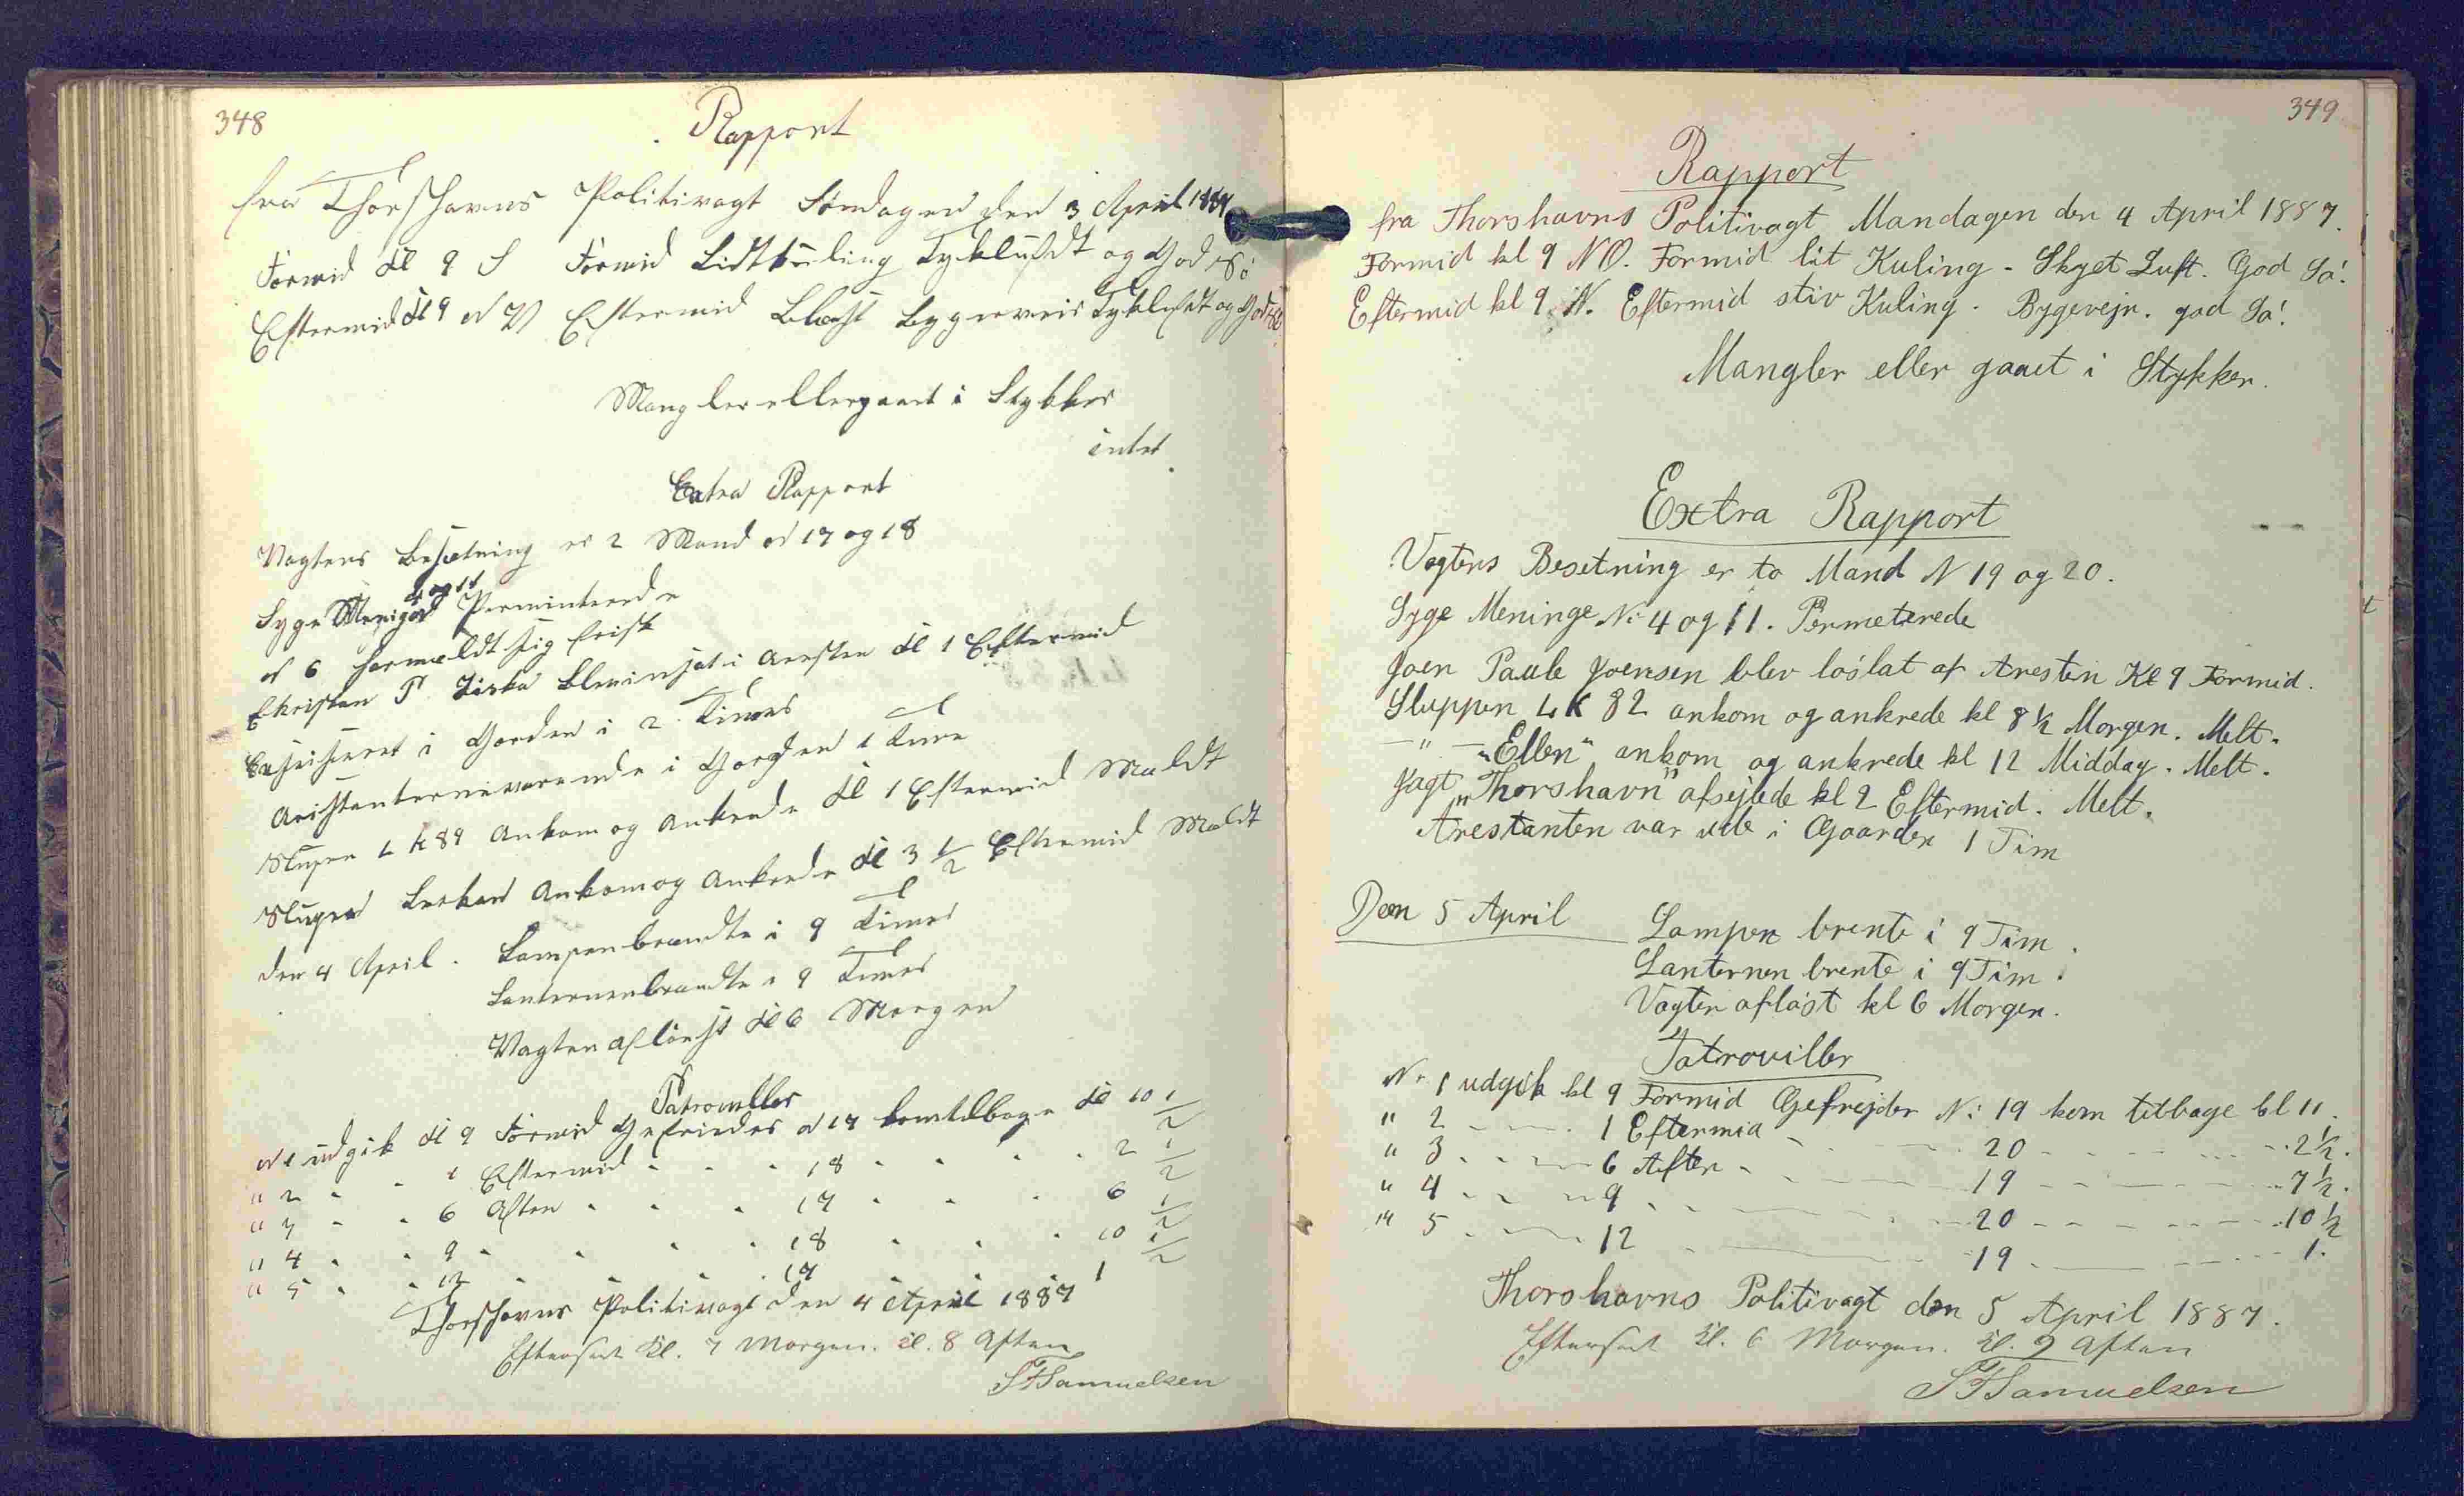 348
Rapport
fra Thorshavns Politivagt Søndagen den 3 April 1887
Formid Kl 9 S Formid Lidtkuling Tykluft og God Sö
Eftermid Kl 9 N V Eftermid Blæst bygeveir Tykluft og God Sö
Mangler eller gaaet i Stykker
intet.
Extra Rapport
Vagtens besætning er 2 Mand N 17 og 18
4 og 11
Syge Menige Perminterede
N 6 har mældt sig frisk
Christen P blev insat i Aresten Kl 1 Eftermid
Exersiseret i Gorden i 2 Timer
Aristanterne varende i Gorden 1 Time
Slupen L K 89 Ankom og Ankrede Kl 1 Eftermid Mældt
Slupen Ankom og Ankrede Kl 3 1/2 Eftermid Mældt
den 4 April. Lampen brændte i 9 Timer
Lanternen brændte i 9 Timer
Vagten aflöist Kl 6 Morgen
Patrouller
N 1 udgik Kl 9 Formid Gefreider N 17 kom tilbage Kl 10 1/2
" 2 - - 1 Eftermid - - - 18 - - - - 2 1/2
" 3 - - 6 Aften - - - 17 - - - 6 1/2
" 4 - - 9 - - - - 18 - - - 10 1/2
" 5 - - 12 - - - - 17 - - - 1
Thorshavns Politivagt den 4 April 1887
Efterset Kl. 7 Morgen. Kl. 8 Aften
Samuelsen
349
Rapport
fra Thorshavns Politivagt Mandagen den 4 April 1887.
Formid kl 9 NO. Formid lit Kuling - Skyet Luft. God Sö.
Eftermid kl 9 N. Eftermid stiv Kuling. Bygevejr. god Sö.
Mangler eller gaaet i Stykker.
Extra Rapport
Vagtens Besetning er to Mand N 19 og 20.
Syge Meninge N: 4 og 11. Permeterede
Joen Paule Joensen blev löslat af Aresten Kl 9 Formid.
Sluppen L K 82 ankom og ankrede kl 8 1/2 Morgen. Melt.
— " — „Ellen" ankom og ankrede kl 12 Middag. Melt.
Jagt „Thorshavn" afsejlede kl 2 Eftermid. Melt.
Arestanten var ude i Gaarden 1 Tim
Den 5 April Lampen brente i 9 Tim.
Lanternen brente i 9 Tim.
Vagten aflöst kl 6 Morgen.
Patrouiller
N. 1 udgik kl 9 Formid Gefrejder N: 19 kom tilbage kl 11.
" 2 - - - 1 Eftermid - - - 20 - - - 2 1/2.
" 3 - - - 6 Aften - - - 19 - - - 7 1/2.
" 4 - - - 9 - - - 20 - - - 10 1/2
" 5 - - - 12 - - - 19 - - - 1.
Thorshavns Politivagt den 5 April 1887.
Efterset Kl. 6 Morgen. Kl. 9 Aften
Samuelsen